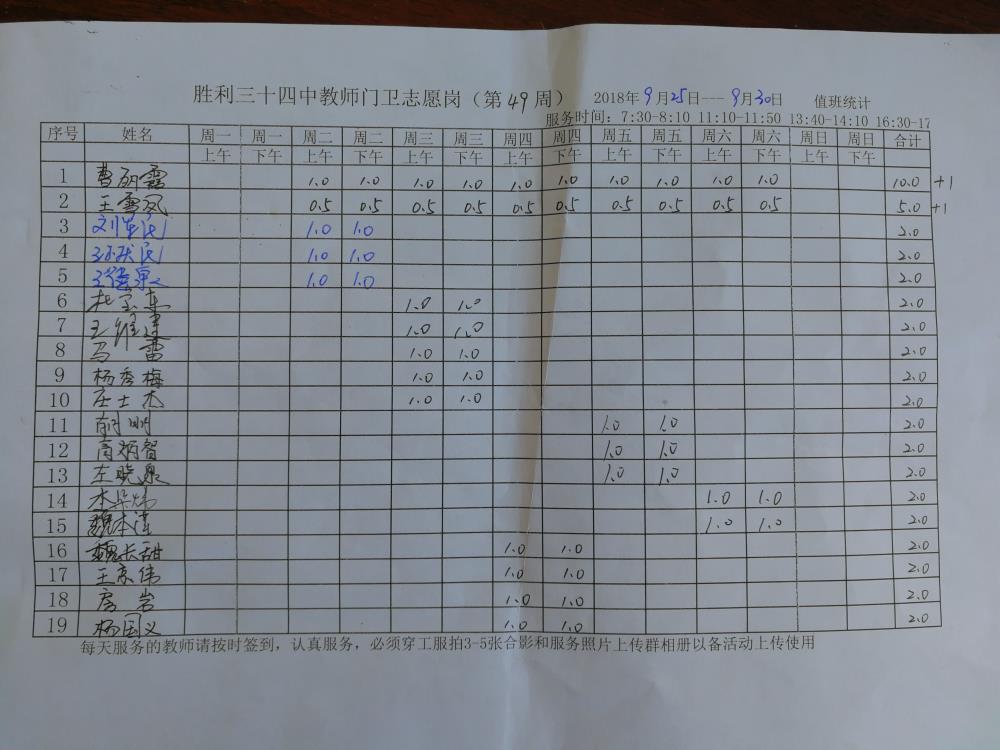 胜利三十四中教师门卫志愿岗（第49周） 2018年9月25日---9月30日 值班统计
服务时间：7:30-8:10 11:10-11:50 13:40-14:10 16:30-17
序号 姓名 周一 周一 周二 周二 周三 周三 周四 周四 周五 周五 周六 周六 周日 周日 合计
上午 下午 上午 下午 上午 下午 上午 下午 上午 下午 上午 下午 上午 下午
1 曹丽霞 1.0 1.0 1.0 1.0 1.0 1.0 1.0 1.0 1.0 1.0 10.0 +1
2 王雪凤 0.5 0.5 0.5 0.5 0.5 0.5 0.5 0.5 0.5 0.5 5.0 +1
3 1.0 1.0 2.0
4 1.0 1.0 2.0
5 1.0 1.0 2.0
6 1.0 1.0 2.0
7 王维建 1.0 1.0 2.0
8 马雷 1.0 1.0 2.0
9 杨秀梅 1.0 1.0 2.0
10 庄士杰 1.0 1.0 2.0
11 1.0 1.0 2.0
12 高炳智 1.0 1.0 2.0
13 左晓泉 1.0 1.0 2.0
14 1.0 1.0 2.0
15 魏本 1.0 1.0 2.0
16 魏长甜 1.0 1.0 2.0
17 王京伟 1.0 1.0 2.0
18 房岩 1.0 1.0 2.0
19 杨国义 1.0 1.0 2.0
每天服务的教师请按时签到，认真服务，必须穿工服拍3-5张合影和服务照片上传群相册以备活动上传使用